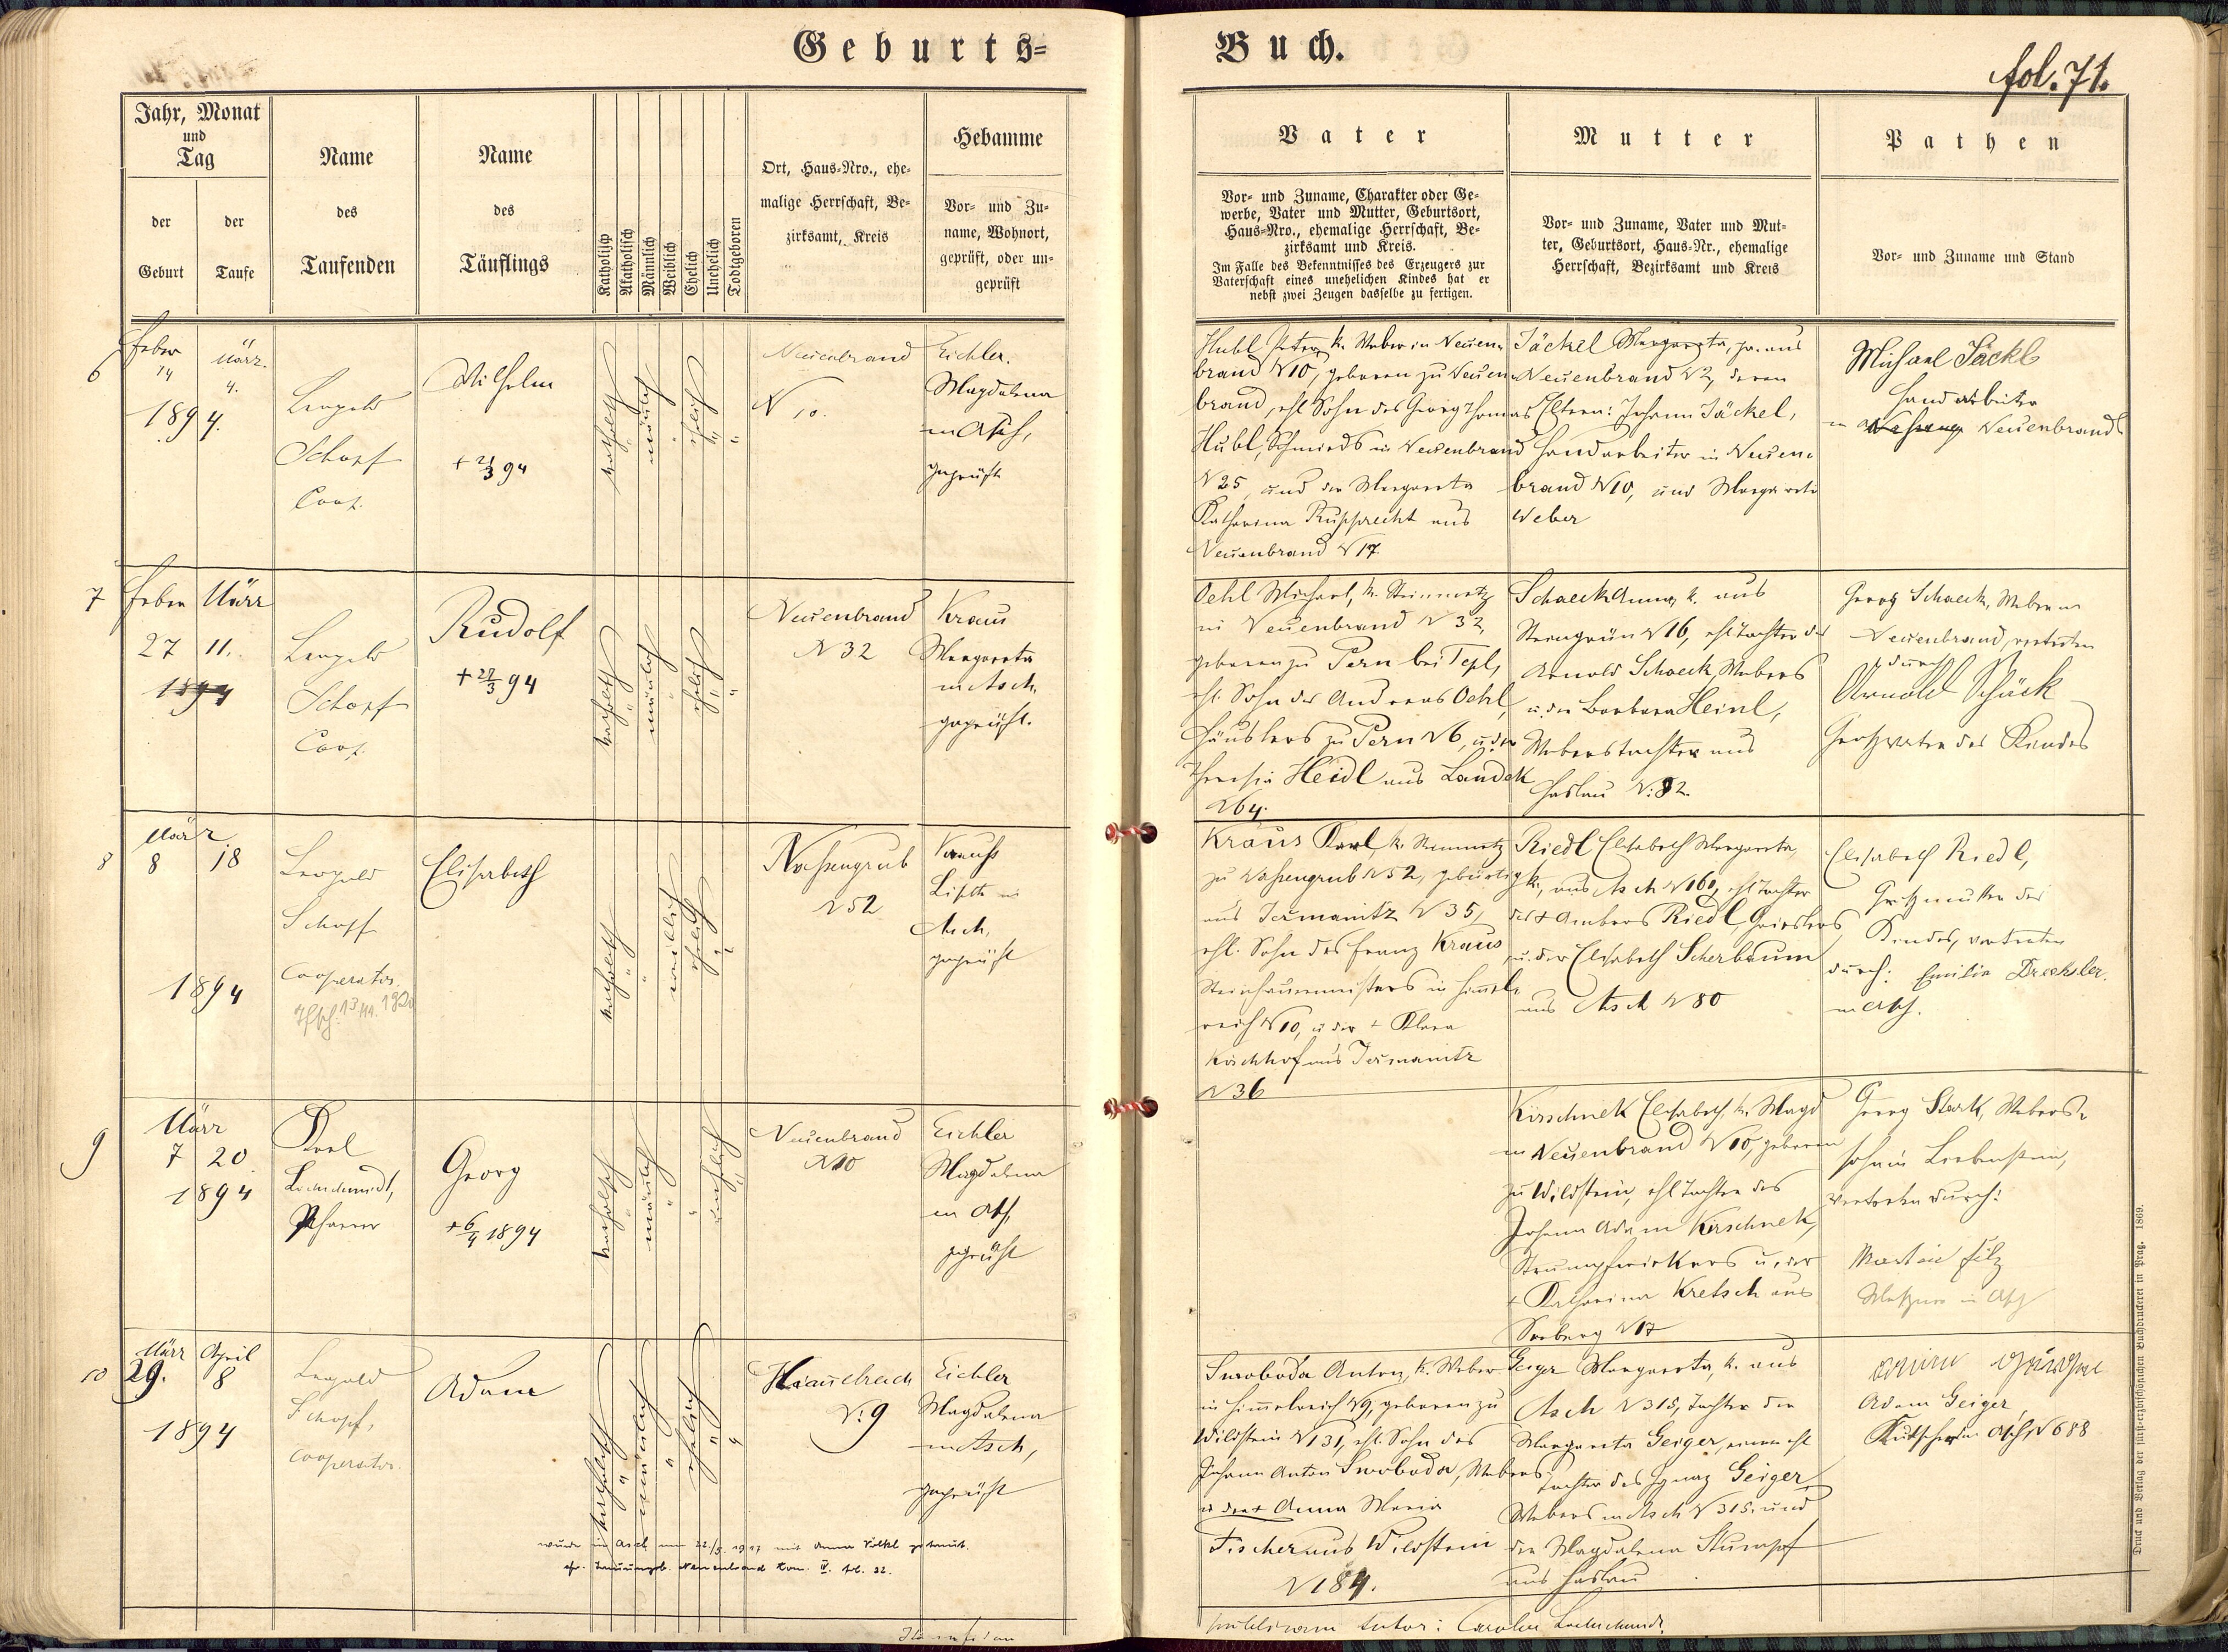 Geburts-
Buch.
fol. 71.
Jahr, Monat
und
Tag
der
Geburt
der
Taufe
Name
des
Taufenden
Name
des
Täuflings
Katholisch
Akatholisch
Männlich
Weiblich
Ehelich
Unehelich
Todtgeboren
Ort, Haus-Nro., ehe-
malige Herrschaft, Be-
zirksamt, Kreis
Hebamme
Vor- und Zu-
name, Wohnort,
geprüft, oder un-
geprüft
Vater
Vor- und Zuname, Charakter oder Ge-
werbe, Vater und Mutter, Geburtsort,
Haus-Nro., ehemalige Herrschaft, Be-
zirksamt und Kreis.
Im Falle des Bekenntnisses des Erzeugers zur
Vaterschaft eines unehelichen Kindes hat er
nebst zwei Zeugen dasselbe zu fertigen.
Mutter
Vor- und Zuname, Vater und Mut-
ter, Geburtsort, Haus-Nr., ehemalige
Herrschaft, Bezirksamt und Kreis
Pathen
Vor- und Zuname und Stand
6
Feber
14
März
4.
1894.
Leopold
Schopf
Coop.
Wilhelm
+ 21/3 94
katholisch
männlich
ehelich
Neuenbrand
N 10.
Eichler
Magdalena
in Asch,
geprüft
Hubl Peter, k. Weber in Neuen-
brand N 10, geboren zu Neuen-
brand, ehl Sohn des Georg Thomas
Hubl, Schmieds in Neuenbrand
N 25, und der Margareta
Katharina Rupprecht aus
Neuenbrand N 17.
Jäckel Margareta, aus
Neuenbrand N 2, deren
Eltern: Johann Jäckel,
Handarbeiter in Neuen-
brand N 10, und Margareta
Weber
Michael Jäckl
Handarbeiter
in Neuenbrand
7
Feber
27
März
11.
1894
Leopold
Schopf
Coop.
Rudolf
+ 27/3 94
katholisch
männlich
ehelich
Neuenbrand
N 32
Kraus
Margareta
in Asch,
geprüft.
Oehl Michael, k. Steinmetz
in Neuenbrand N 32,
geboren zu Pern bei Tepl,
ehl. Sohn des Andreas Oehl,
Häuslers zu Pern N 6, u. der
Theresia Heidl aus Landek
N 64.
Schaeck Anna, k. aus
Steingrün N 16, ehl Tochter des
Arnold Schaeck, Webers
u. der Barbara Heinl,
Weberstochter aus
Haslau N: 82.
Georg Schaeck, Weber in
Neuenbrand, vertreten
durch
Arnold Schäck
Großvater des Kindes
8
März
8
18
1894
Leopold
Schopf
Cooperator.
Elisabeth
katholisch
weiblich
ehelich
Nassengrub
N 52
Kraus
Lisette in
Asch,
geprüft
Kraus Karl, k. Steinmetz
zu Nassengrub N 52, gebürtig
aus Jermanitz N 35,
ehl. Sohn des Franz Kraus,
in Himmel-
reich N 10, u. der + Klara
Kirchhof aus Jermanitz
N 36
Riedl Elisabeth Margareta,
k., aus Asch N 160, ehl Tochter
des + Riedl
u. der Elisabeth Scherbaum
aus Asch N 80
Elisabeth Riedl,
Großmutter des
Kindes, vertreten
durch: Emilie Drechsler
in Asch.
9
März
7
20
1894
Karl
Pfarrer
Georg
+ 6/4 1894
katholisch
männlich
unehelich
Neuenbrand
N 10
Eichler
Magdalena
in Asch,
geprüft
Kirschnek Elisabeth, k. Magd
in Neuenbrand N 10, geboren
zu Wildstein, ehl Tochter des
Johann Adam Kirschnek,
Strumpfwirkers u. der
+ Katharina Kretsch aus
Sorberg N 17
Georg Stark, Webers-
sohn in Liebenstein,
vertreten durch:
Martin Filz
Meßner in Asch
10
März
29.
April
8
1894
Leopold
Schopf,
Cooperator.
Adam
katholisch
männlich
ehelich
Himmelreich
N: 9
Eichler
Magdalena
in Asch,
geprüft
Swoboda Anton, k. Weber
in Himmelreich N 9, geboren zu
Wildstein N 131, ehl. Sohn des
Johann Anton Swoboda, Webers
u. der + Anna Maria
Fischer aus Wildstein
N 184.
Geiger Margareta, k. aus
Asch N 315, Tochter der
Margareta Geiger, einer ehl
Tochter des Ignaz Geiger
Webers in Asch N 315. und
der Magdalena Stumpf
aus Haslau
Adam Geiger
Kutscher in Asch N 688
wurde in Asch am 22./5. 1917 mit Anna Völkl getraut.
Neuenbrand Tom. II. fol. 22.
Druck und Verlag der fürst-erzbischöflichen Buchdruckerei in Prag. 1869.